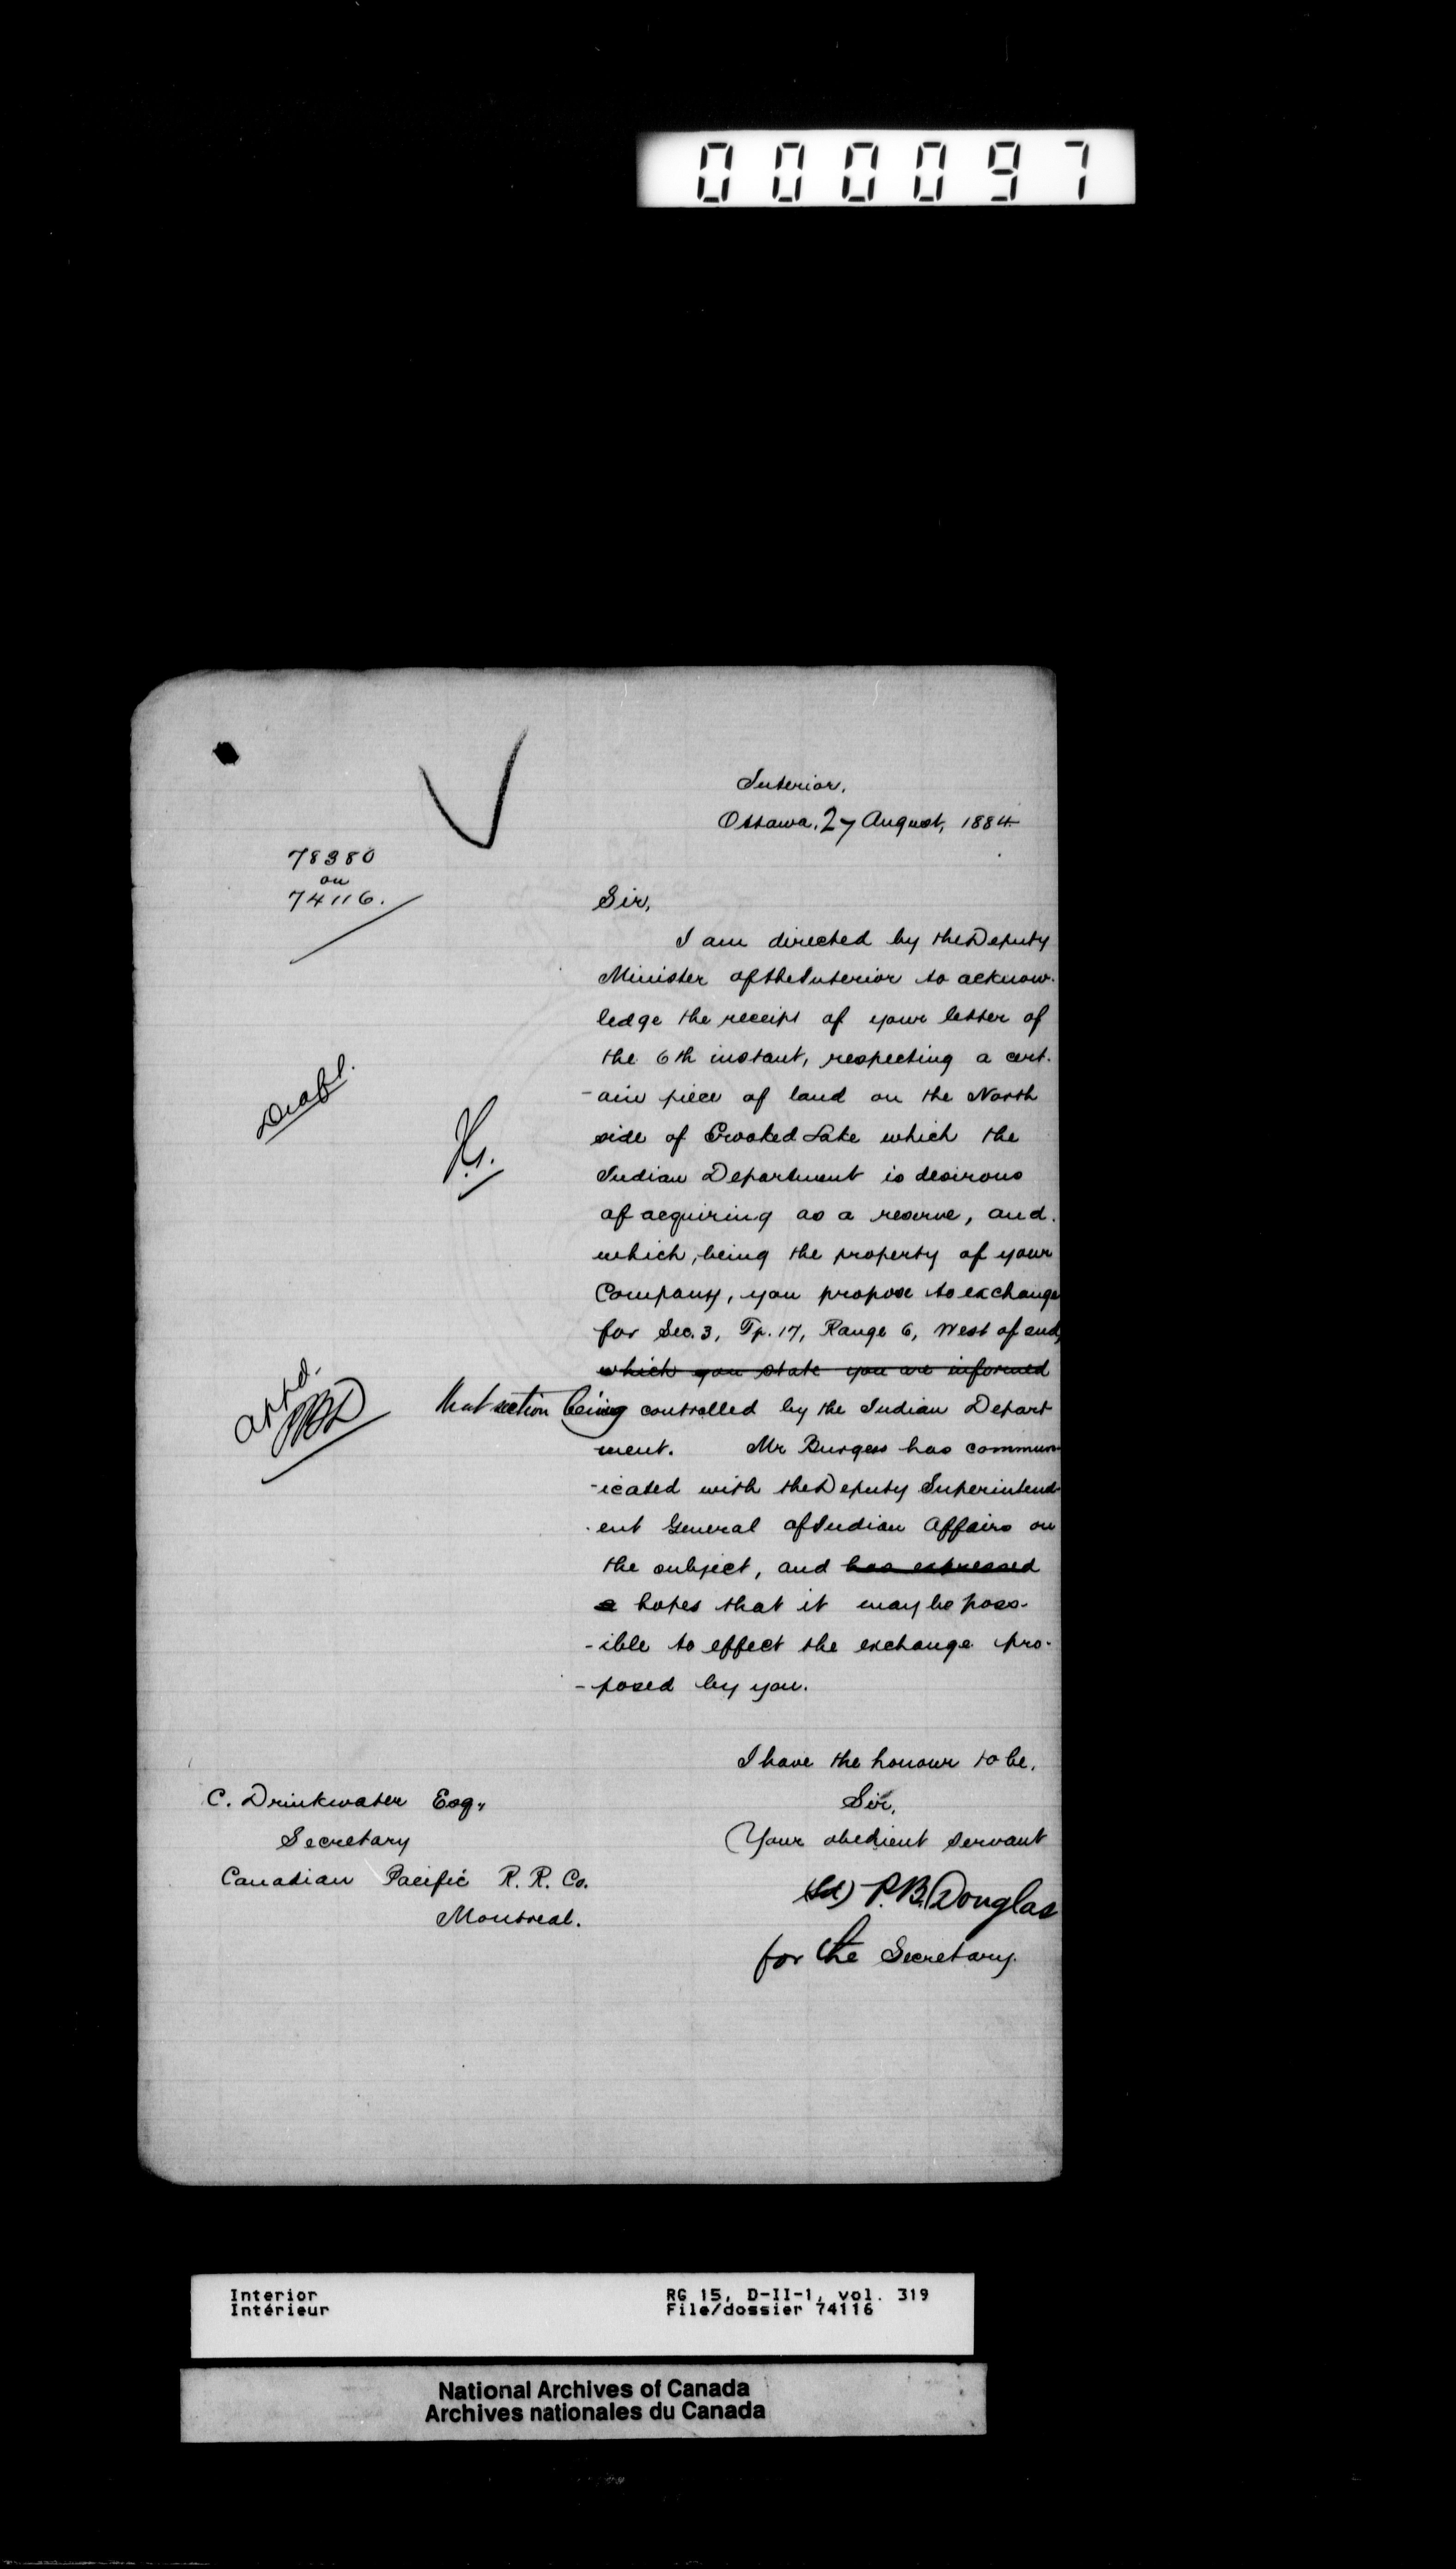 000097
Interior.
Ottawa, 27 August, 1884.
78380
on
74116.
Sir,
I am directed by the Deputy
Minister of the Interior to acknow-
ledge the receipt of your letter of
the 6th instant, respecting a cert-
-ain piece of land on the North
side of Crooked Lake which the
Indian Department is desirous
of acquiring as a reserve, and
which, being the property of your
Company, you propose to exchange
for Sec. 3, Tp. 17, Range 6, West of 2nd,
which you state you are informed
that section being controlled by the Indian Depart
ment. Mr Burgess has commun
-icated with the Deputy Superintend
-ent General of Indian Affairs on
the subject, and has expressed
a hopes that it may be poss-
-ible to effect the exchange pro-
-posed by you.
Draft.
H.
appd.
PBD
I have the honour to be,
Sir,
Your obedient servant
(Sd) P.B. Douglas
for the Secretary.
C. Drinkwater Esq,
Secretary
Canadian Pacific R. R. Co.
Montreal.
Interior
Intérieur
RG 15, D-II-1, vol. 319
File/dossier 74116
National Archives of Canada
Archives nationales du Canada